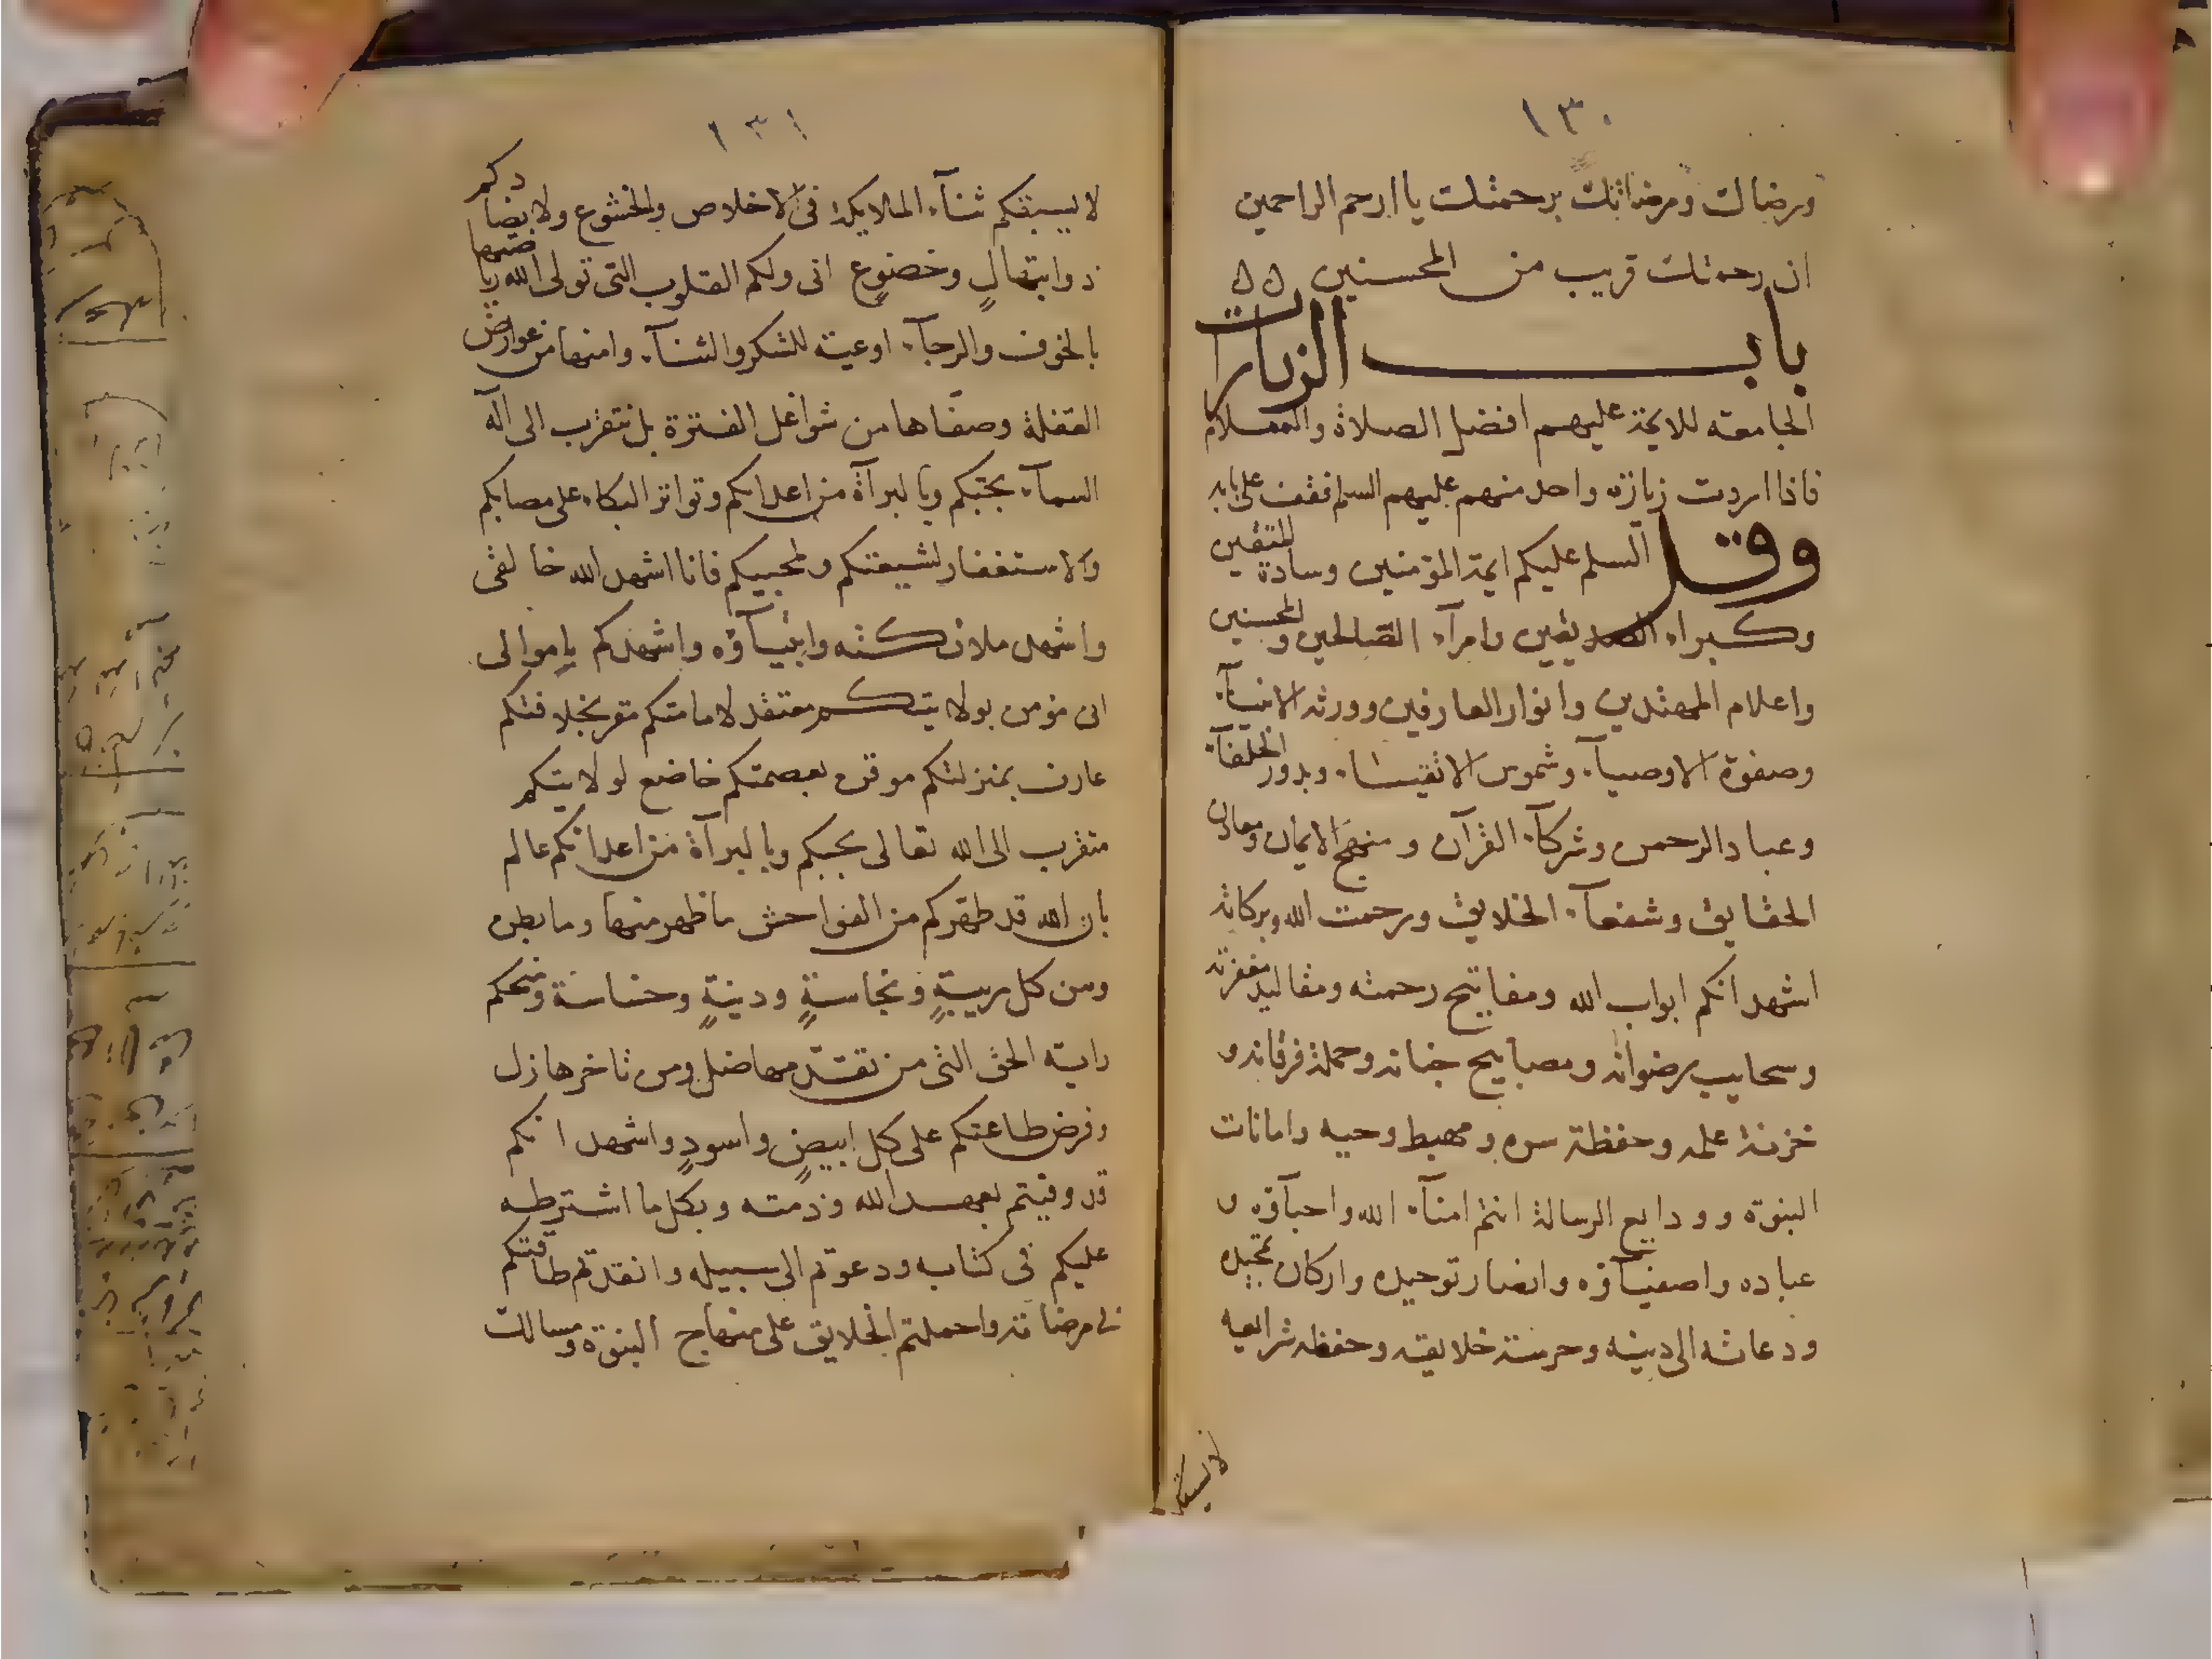 ١٣٠
ورضاك ومرضاتك برحمتك يا ارحم الراحمين
ان رحمتك قريب من المحسنين ٥٥
باب الزيارت
الجامعه للايمة عليهم افضل الصلاة والسلام
فاذا اردت زيارة واحد منهم عليهم السلم فقف على بابه
وقل السلم عليكم ايمة المؤمنين وسادة المتقين
وكبراء الصديقين وامرآء الصالحين والمحسنين
واعلام المهتدين وانوار العارفين وورثة الانبيآء
وصفوة الاوصيآء وشموس الاتقياء وبدور الخلفآء
وعباد الرحمن وشركآء القرآن ومنهج الايمان ومعادن
الحقايق وشفعآء الخلايق ورحمت الله وبركاته
اشهد انكم ابواب الله ومفاتيح رحمته ومقاليد مغفرته
وسحايب رضوانه ومصابيح جنانه وحملة فرقانه و
خزنة علمه وحفظة سره ومهبط وحيه وامانات
النبوة وودايع الرسالة انتم امنآء الله واحبآؤه و
عباده واصفيآؤه وانصار توحيده واركان تمجيده
ودعاته الى دينه وحرسة خلايقه وحفظه شرايعه
لا يسبقكم
١٣١
لا يسبقكم ثنآء الملايكة فى الاخلاص والخشوع ولا يضادكم
ذو ابتهالٍ وخضوعٍ انى ولكم القلوب التى تولى الله رياضتها
بالخوف والرجآء اوعية للشكر والثنآء وامنها من عوارض
الغفلة وصفاها من شواغل الفترة بل نتقرب الى اله
السمآء بحبكم وبالبرآة من اعدايكم وتواتر البكاء على مصابكم
والاستغفار لشيعتكم ولمحبيكم فانا اشهد الله خالقى
واشهد ملائكته وانبيآؤه واشهدكم يا موالى
انى مؤمن بولايتكم معتقد لامامتكم مقر بخلافتكم
عارف بمنزلتكم موقن بعصمتكم خاضع لولايتكم
متقرب الى الله تعالى بحبكم وبالبرآة من اعدائكم عالم
بان الله قد طهركم من الفواحش ما ظهر منها وما بطن
ومن كل ريبةٍ ونجاسةٍ ودنيةٍ وخساسة ومنحكم
راية الحق التى من تقدمها ضل ومن تاخر ها زل
وفرض طاعتكم على كل ابيضٍ واسودٍ واشهد انكم
قد وفيتم بعهد الله وذمته وبكل ما اشترطه
عليكم فى كتابه ودعوتم الى سبيله وانفدتم طاقتكم
فى مرضاته واحملتم الخلايق على منهاج النبوة ومسالك